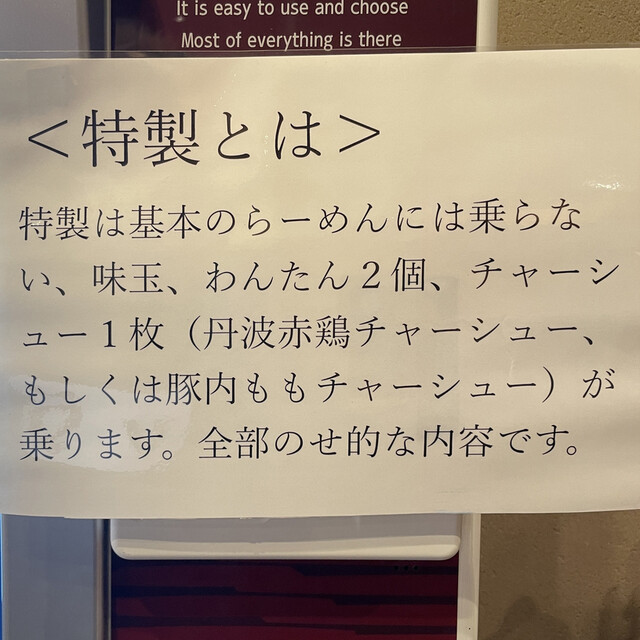 It is easy to use and choose
Most of everything is there
＜特製とは＞
特製は基本のらーめんには乗らな
い、味玉、わんたん２個、チャーシ
ュー１枚（丹波赤鶏チャーシュー、
もしくは豚内ももチャーシュー）が
乗ります。全部のせ的な内容です。